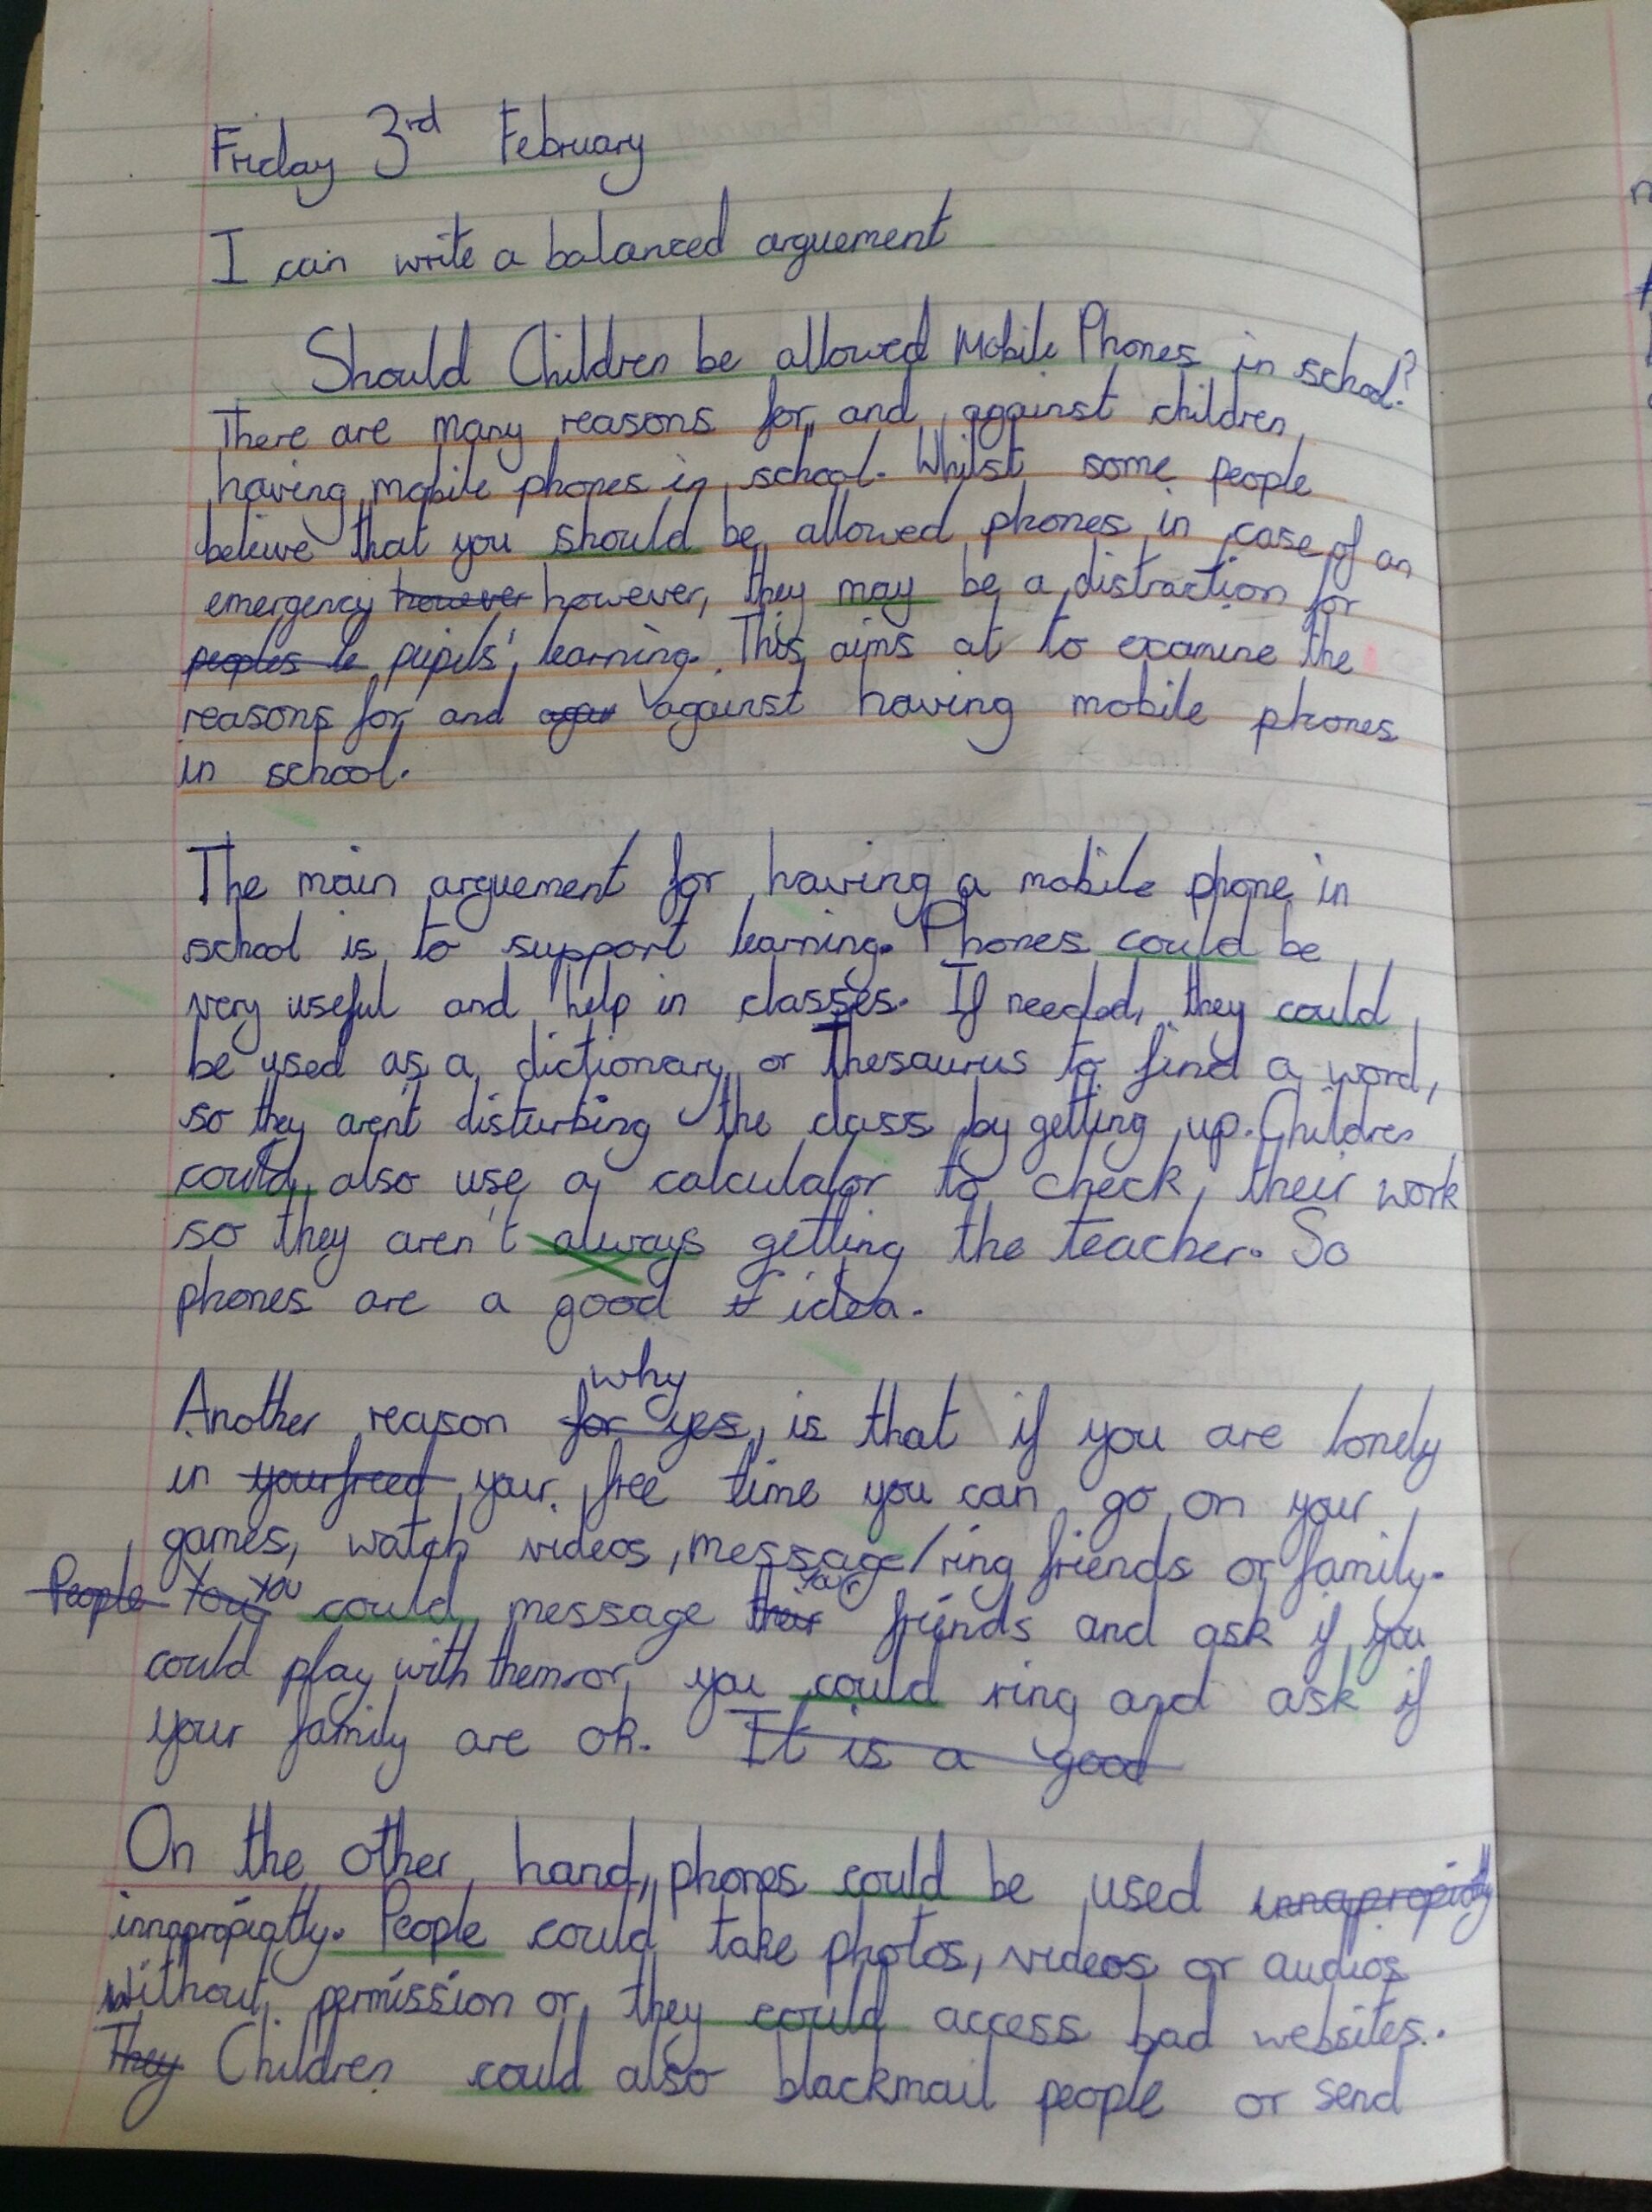 Friday 3rd February
I can write a balanced arguement
Should Children be allowed Mobile Phones in school?
There are many reasons for and against children
having mobile phones in school. Whilst some people
beleive that you should be allowed phones in case of an
emergency however however, they may be a distraction for
peoples le pupils' learning. This aims at to examine the
reasons for and agai against having mobile phones
in school.
The main arguement for having a mobile phone in
school is to support learning. Phones could be
very useful and help in classes. If needed, they could
be used as a dictionary or Thesaurus to find a word,
so they aren't disturbing the class by getting up. Children
could also use a calculator to check their work
so they aren't always getting the teacher. So
phones are a good idea.
why
Another reason for yes, is that if you are lonely
in your freed your free time you can go on your
games, watch videos, message/ring friends or family.
People You you could message their your friends and ask if you
could play with them or you could ring and ask if
your family are ok. It is a good
On the other hand, phones could be used innapropiatly
innapropiatly. People could take photos, videos or audios
without permission or they could access bad websites.
They Children could also blackmail people or send